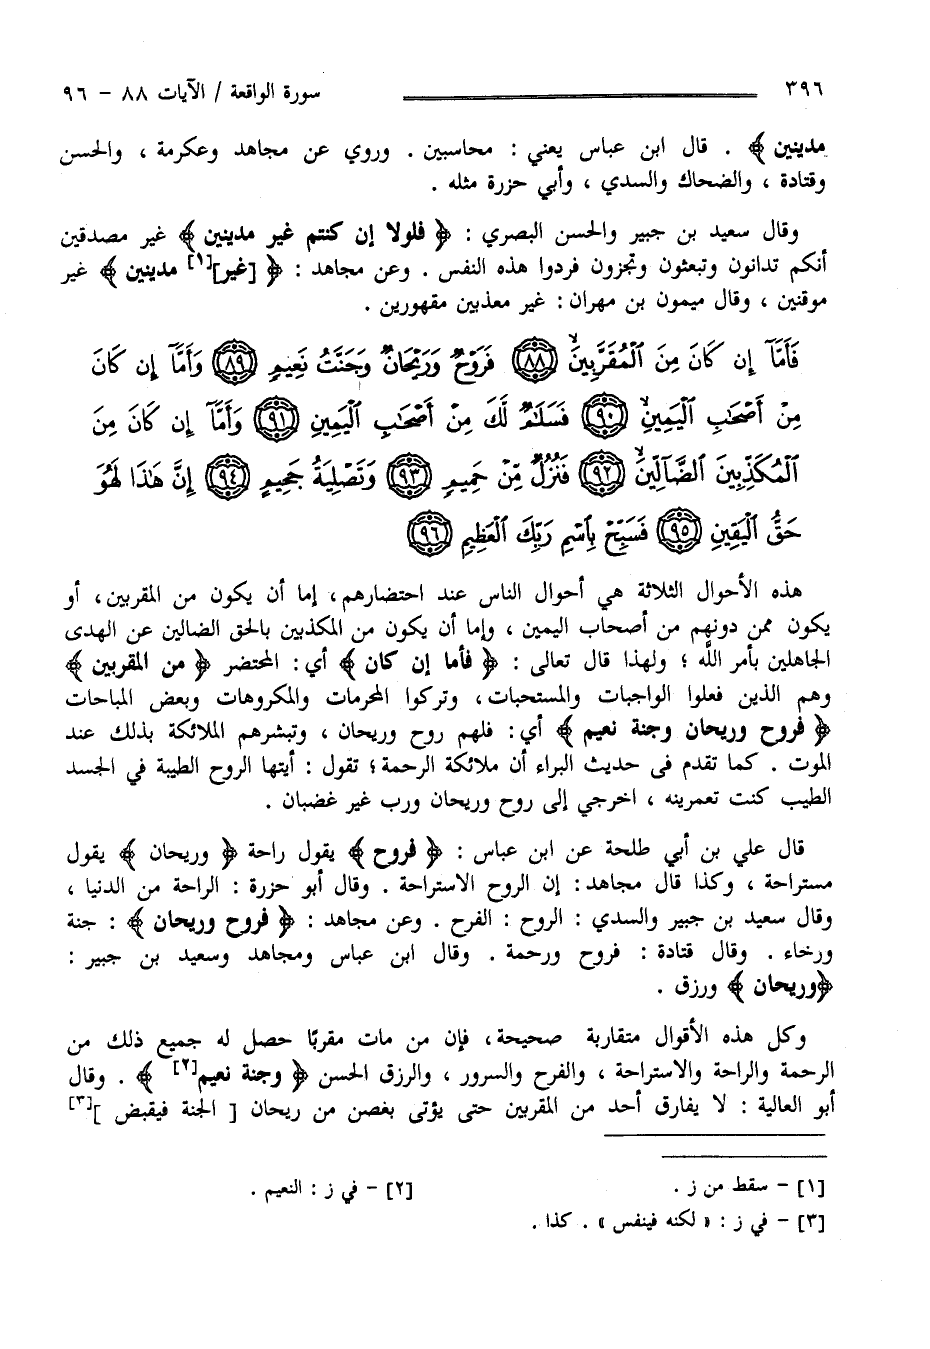 ٣٩٦ سورة الواقعة / الآيات ٨٨ - ٩٦
مدينين ﴾ . قال ابن عباس يعني : محاسبين . وروي عن مجاهد وعكرمة ، والحسن
وقتادة ، والضحاك والسدي ، وأبي حزرة مثله .
وقال سعيد بن جبير والحسن البصري : ﴿ فلولا إن كنتم غير مدينين ﴾ غير مصدقين
أنكم تدانون وتبعثون وتجزون فردوا هذه النفس . وعن مجاهد : ﴿ [غير][١] مدينين ﴾ غير
موقنين ، وقال ميمون بن مهران : غير معذبين مقهورين .
فَأَمَّآ إِن كَانَ مِنَ ٱلْمُقَرَّبِينَ ۙ﴿٨٨﴾ فَرَوْحٌ وَرَيْحَانٌ وَجَنَّتُ نَعِيمٍ ﴿٨٩﴾ وَأَمَّآ إِن كَانَ
مِنْ أَصْحَٰبِ ٱلْيَمِينِ ۙ﴿٩٠﴾ فَسَلَٰمٌ لَّكَ مِنْ أَصْحَٰبِ ٱلْيَمِينِ ﴿٩١﴾ وَأَمَّآ إِن كَانَ مِنَ
ٱلْمُكَذِّبِينَ ٱلضَّآلِّينَ ۙ﴿٩٢﴾ فَنُزُلٌ مِّنْ حَمِيمٍ ﴿٩٣﴾ وَتَصْلِيَةُ جَحِيمٍ ﴿٩٤﴾ إِنَّ هَٰذَا لَهُوَ
حَقُّ ٱلْيَقِينِ ﴿٩٥﴾ فَسَبِّحْ بِٱسْمِ رَبِّكَ ٱلْعَظِيمِ ﴿٩٦﴾
هذه الأحوال الثلاثة هي أحوال الناس عند احتضارهم، إما أن يكون من المقربين، أو
يكون ممن دونهم من أصحاب اليمين ، وإما أن يكون من المكذبين بالحق الضالين عن الهدى
الجاهلين بأمر الله ؛ ولهذا قال تعالى : ﴿ فأما إن كان ﴾ أي: المحتضر ﴿ من المقربين ﴾
وهم الذين فعلوا الواجبات والمستحبات، وتركوا المحرمات والمكروهات وبعض المباحات
﴿ فروح وريحان وجنة نعيم ﴾ أي: فلهم روح وريحان ، وتبشرهم الملائكة بذلك عند
الموت . كما تقدم فى حديث البراء أن ملائكة الرحمة؛ تقول : أيتها الروح الطيبة في الجسد
الطيب كنت تعمرينه ، اخرجي إلى روح وريحان ورب غير غضبان .
قال علي بن أبي طلحة عن ابن عباس : ﴿ فروح ﴾ يقول راحة ﴿ وريحان ﴾ يقول
مستراحة ، وكذا قال مجاهد: إن الروح الاستراحة . وقال أبو حزرة : الراحة من الدنيا ،
وقال سعيد بن جبير والسدي : الروح : الفرح . وعن مجاهد : ﴿ فروح وريحان ﴾ : جنة
ورخاء . وقال قتادة : فروح ورحمة . وقال ابن عباس ومجاهد وسعيد بن جبير :
﴿وريحان ﴾ ورزق .
وكل هذه الأقوال متقاربة صحيحة، فإن من مات مقربًا حصل له جميع ذلك من
الرحمة والراحة والاستراحة ، والفرح والسرور ، والرزق الحسن ﴿ وجنة نعيم[٢] ﴾ . وقال
أبو العالية : لا يفارق أحد من المقربين حتى يؤتى بغصن من ريحان [ الجنة فيقبض ][٣]
[١] - سقط من ز . [٢] - في ز : النعيم .
[٣] - في ز : « لكنه فينفس » . كذا .